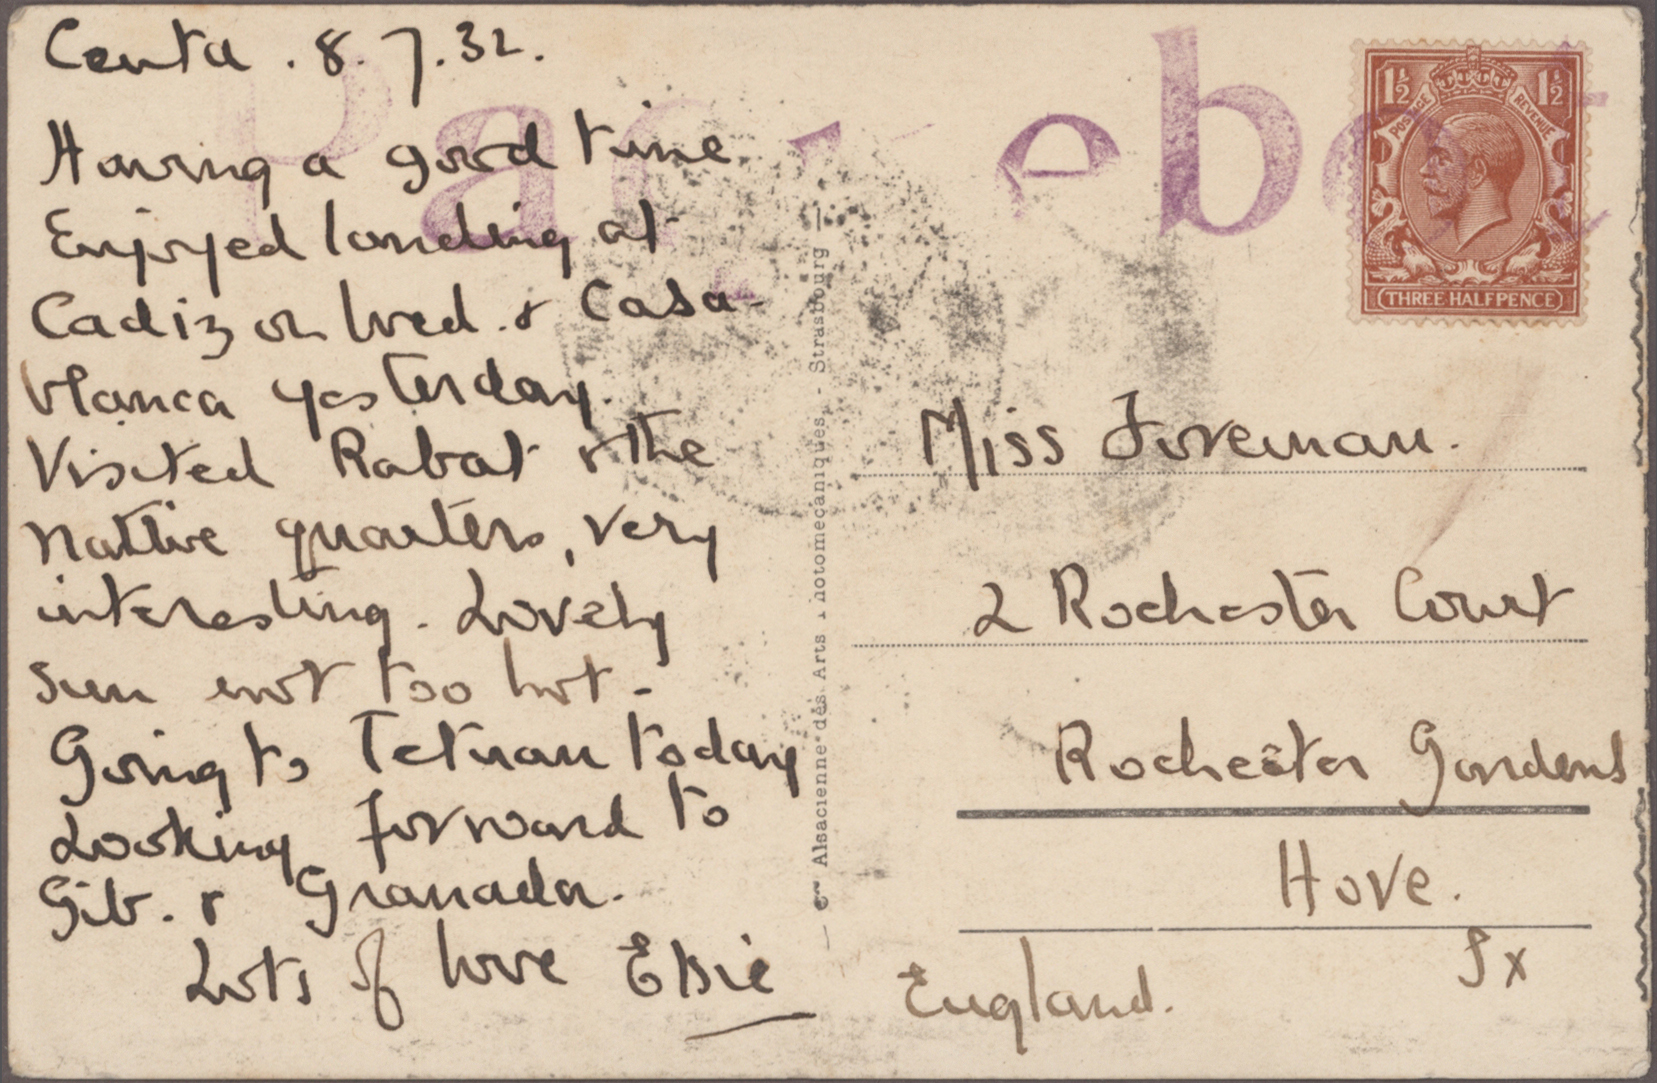 Ceuta . 8. 7. 32.
Having a good time
Enjoyed landing at
Cadiz on Wed. & Casa-
blanca yesterday.
Visited Rabat & the
native quarters, very
interesting. Lovely
sun not too hot -
Going to Tetuan today
Looking forward to
Gib. & Granada.
Lots of love Elsie
Paquebot
1½ 1½
POSTAGE REVENUE
THREE HALFPENCE
Miss Foreman.
2 Rochester Court
Rochester Gardens
Hove.
Sx
England.
Alsacienne des Arts Photomécaniques - Strasbourg